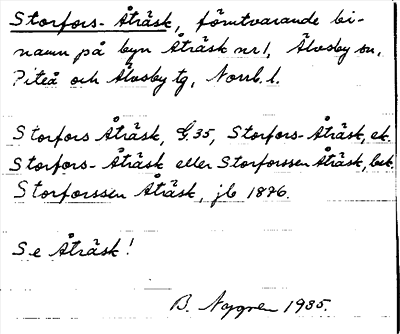 Storfors-Åträsk, förutvarande bi-
namn på byn Åträsk nr 1, Älvsby sn,
Piteå och Älvsby tg, Norrb. l.
Storfors Åträsk, G. 35, Storfors-Åträsk, ek.
Storfors-Åträsk eller Storforssen Åträsk, besk.
Storforssen Åträsk, jb 1876.
Se Åträsk!
B. Nygren 1935.